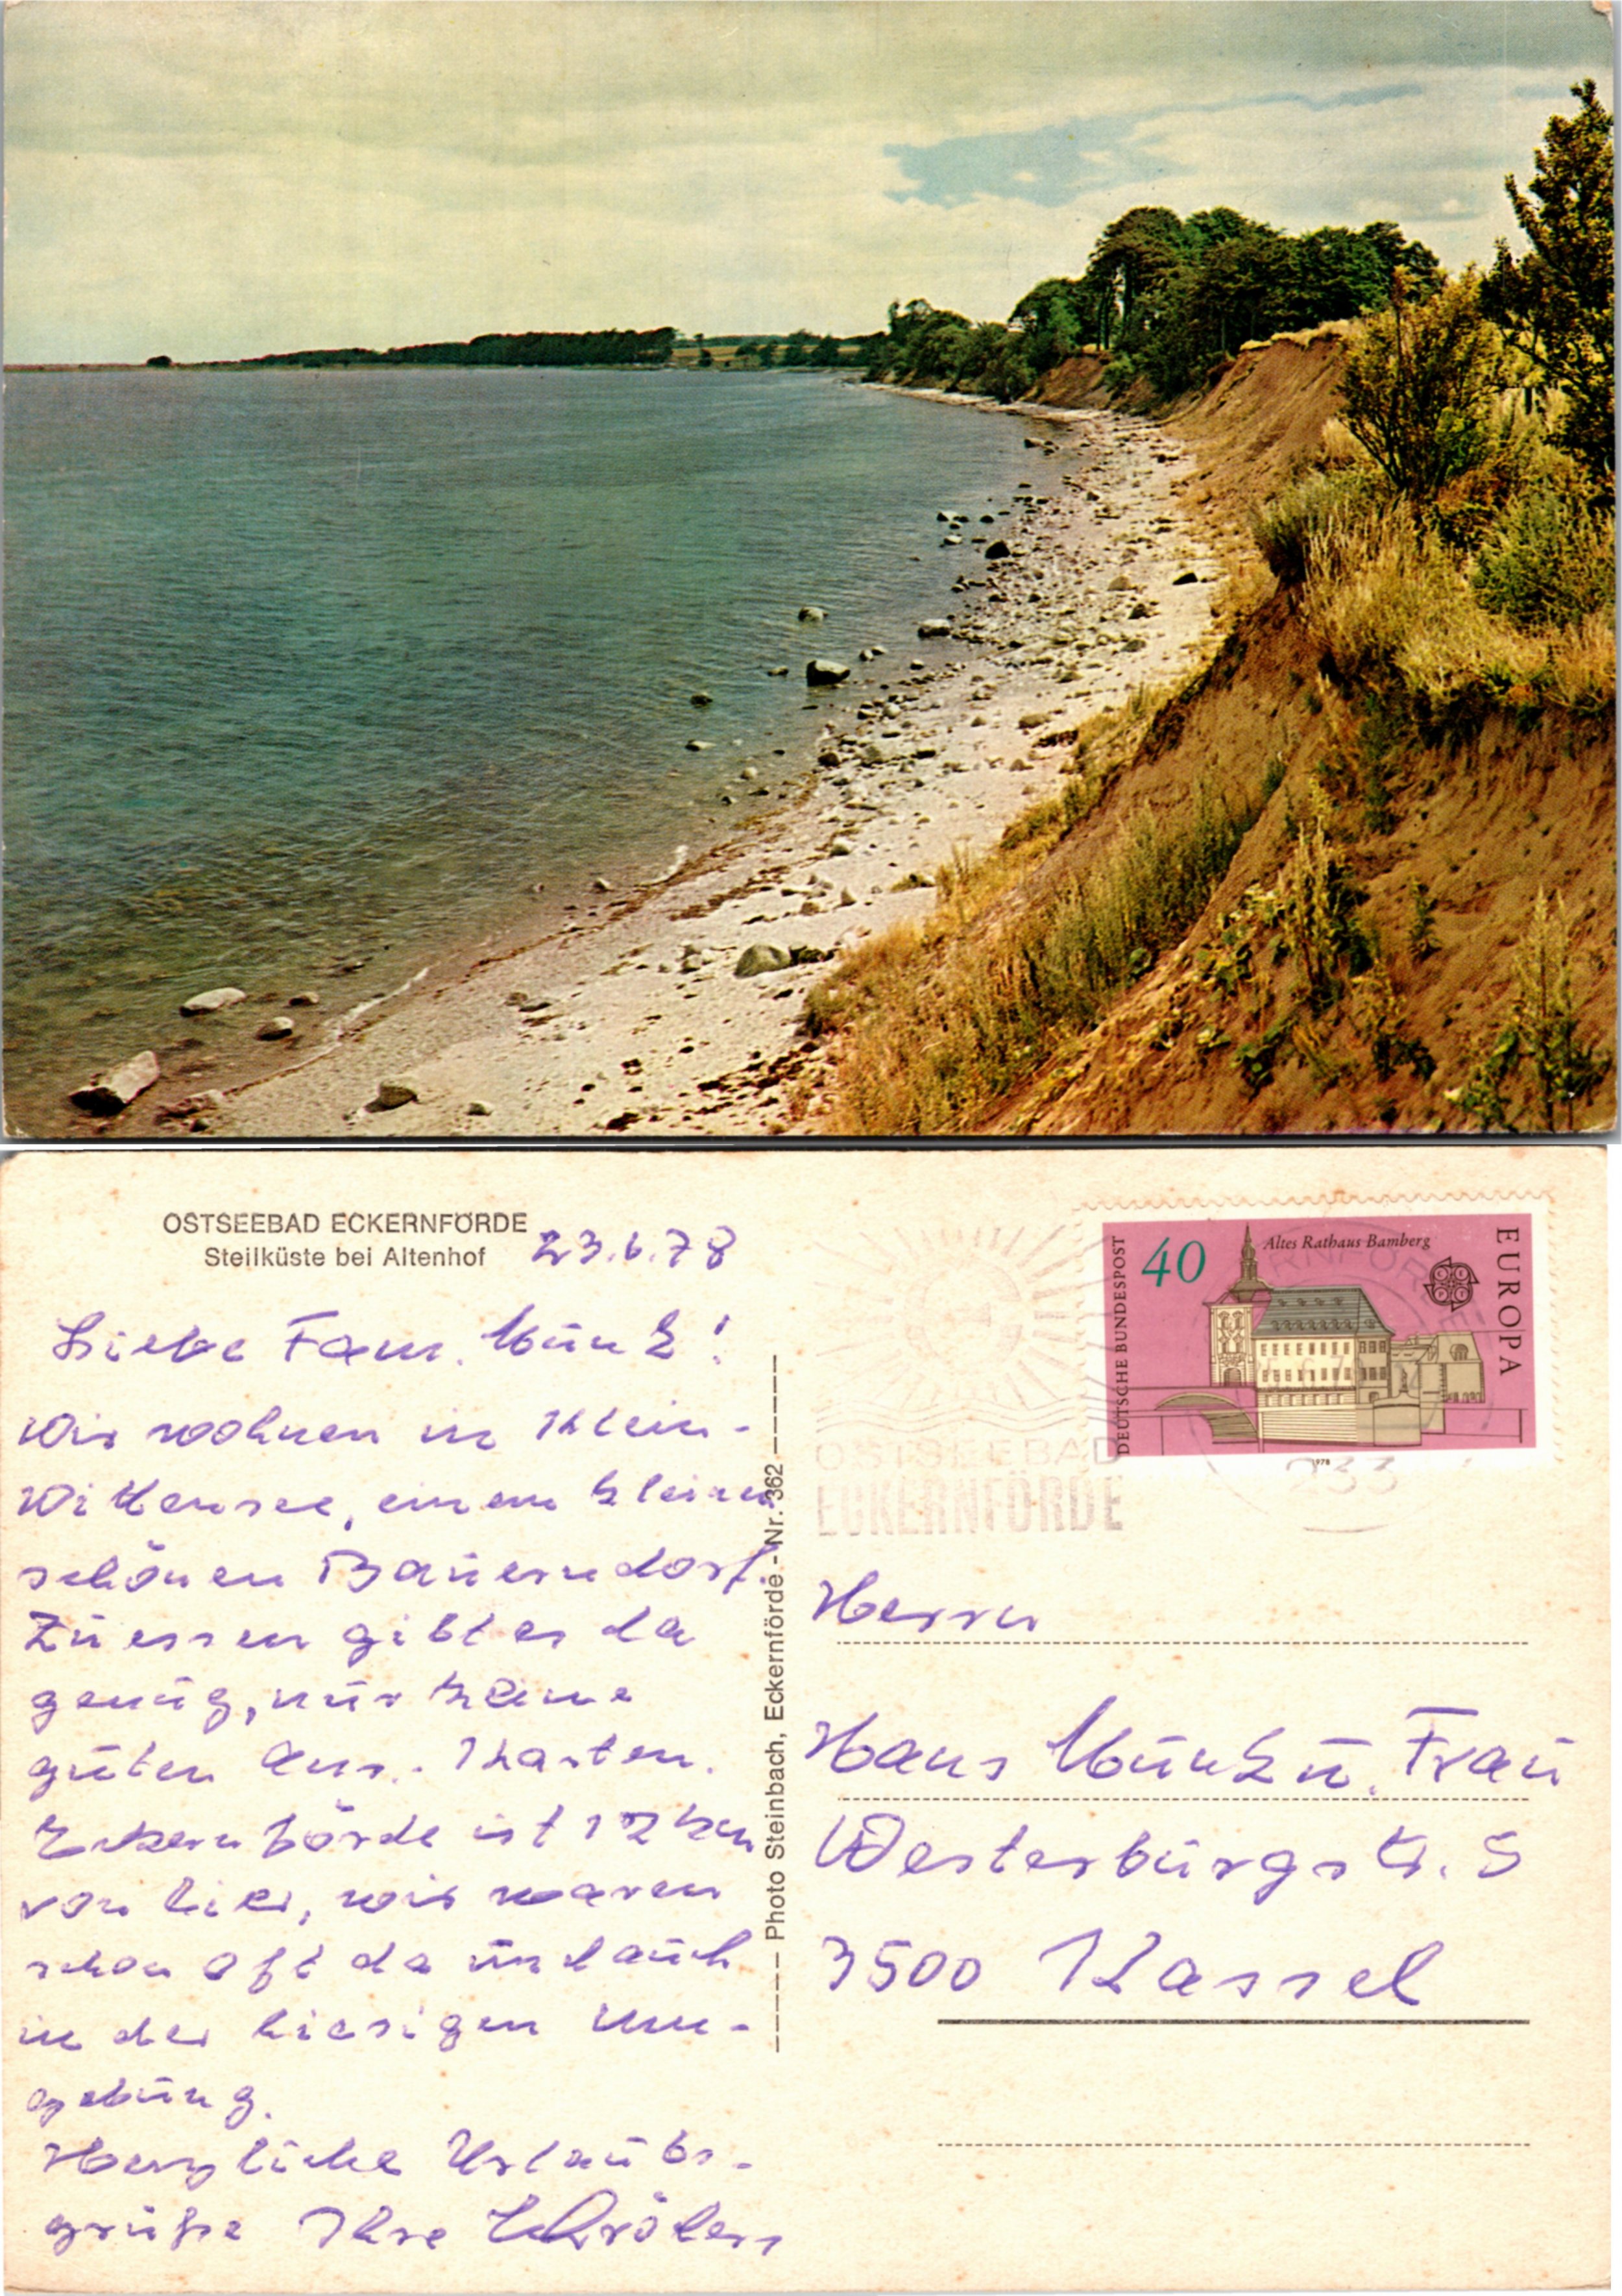 OSTSEEBAD ECKERNFÖRDE
Steilküste bei Altenhof
23.6.78
Liebe Fam. Munk!
Wir wohnen in Klein-
Wittensee, einem kleinen
schönen Bauerndorf.
Zu essen gibt es da
genug, nur keine
guten Ans.-Karten.
Eckernförde ist 12 km
von hier, wir waren
schon oft da und auch
in der hiesigen Um-
gebung.
Herzliche Urlaubs-
grüße Ihre
Photo Steinbach, Eckernförde. - Nr. 362
DEUTSCHE BUNDESPOST
40
Altes Rathaus Bamberg
EUROPA
1978
OSTSEEBAD
ECKERNFÖRDE
233
Herrn
Hans Munk u. Frau
Westerburgstr. 5
3500 Kassel